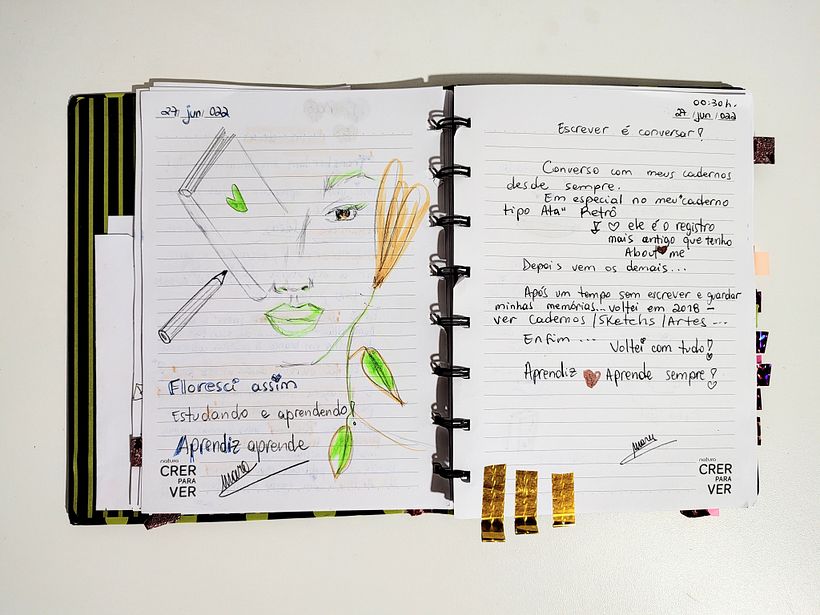 27 jun 022
Flloresci assim
Estudando e aprendendo!
Aprendiz aprende
mara
natura
CRER
PARA
VER
00:30h.
27 jun 022
Escrever é conversar!
Converso com meus cadernos
desde sempre.
Em especial no meu "caderno
tipo Ata" Retrô
ele é o registro
mais antigo que tenho
About me
Depois vem os demais...
Após um tempo sem escrever e guardar
minhas memórias... voltei em 2018 -
ver Cadernos/Sketchs/Artes...
Enfim...
Voltei com tudo!
Aprendiz Aprende sempre!
mara
natura
CRER
PARA
VER